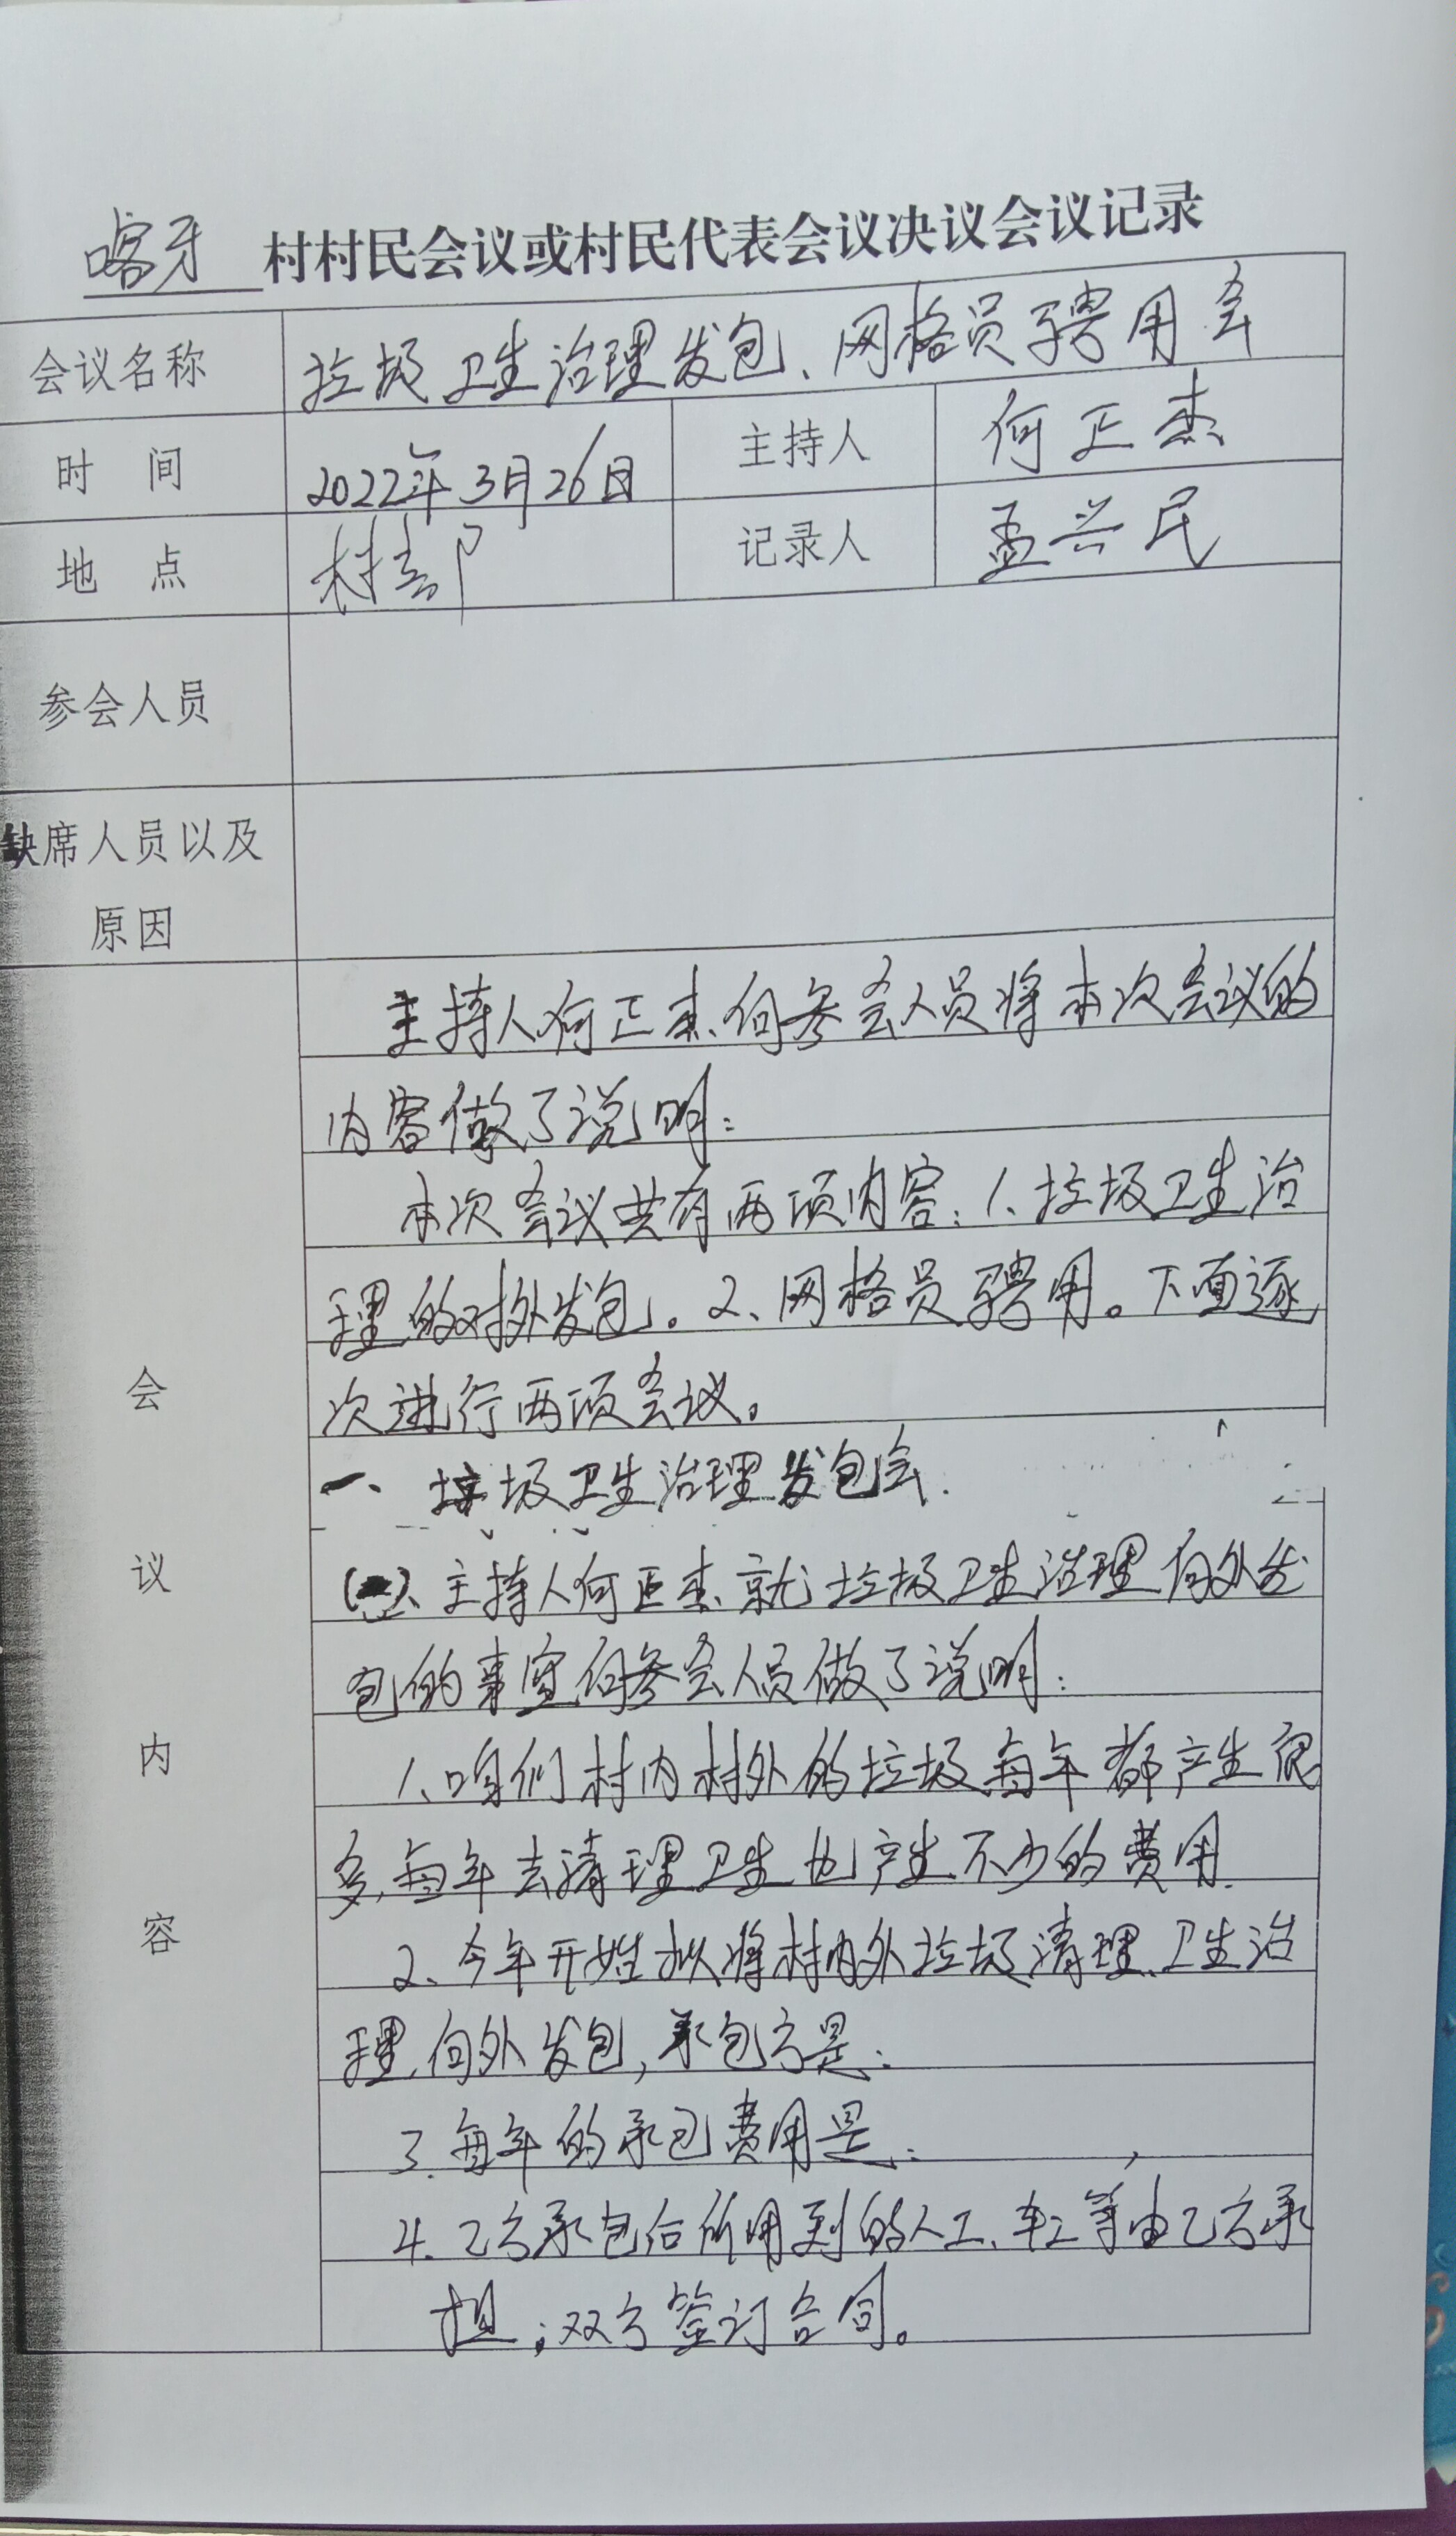 喀牙 村村民会议或村民代表会议决议会议记录
会议名称 垃圾卫生治理发包、网格员聘用会
时 间 2022年3月26日 主持人 何正杰
地 点 村部 记录人 孟兴民
参会人员
缺席人员以及
原因
会议内容
主持人何正杰向参会人员将本次会议的
内容做了说明：
本次会议共有两项内容：1、垃圾卫生治
理的对外发包。2、网格员聘用。下面逐
次进行两项会议。
一、垃圾卫生治理发包会.
主持人何正杰就垃圾卫生治理向外发
包的事宜向参会人员做了说明：
1、咱们村内村外的垃圾每年都产生很
多,每年去清理卫生也产生不少的费用.
2、今年开始拟将村内外垃圾清理、卫生治
理,向外发包,承包方是：
3.每年的承包费用是：
4.乙方承包后所用到的人工、车工等由乙方承
担；双方签订合同。